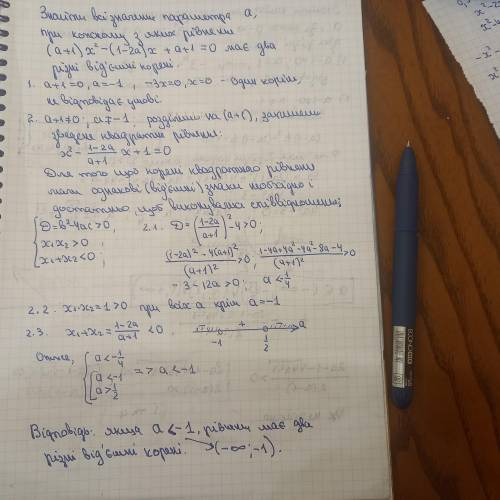 Знайти всі значення параметра a,
при кожному з яких рівняння
(a+1)x² - (1-2a)x + a+1 = 0 має два
різні від'ємні корені.
1. a+1=0, a=-1, -3x=0, x=0 - один корінь,
не відповідає умові.
2. a+1≠0, a≠-1, розділимо на (a+1), запишемо
зведене квадратне рівняння:
x² - (1-2a)/(a+1) x + 1 = 0
Для того щоб корені квадратного рівняння
мали однакові (від'ємні) знаки необхідно і
достатньо, щоб виконувалися співвідношення:
{ D=b²-4ac>0, 2.1. D=((1-2a)/(a+1))² - 4>0;
x₁x₂>0, ((1-2a)² - 4(a+1)²)/(a+1)² > 0, (1-4a+4a²-4a²-8a-4)/(a+1)² > 0
x₁+x₂<0; -3-12a>0, a<-1/4
2.2. x₁·x₂=1>0 при всіх a крім a=-1
2.3. x₁+x₂ = (1-2a)/(a+1) < 0 - + - a
-1 1/2
Отже, { a<-1/4
[ a<-1 => a<-1
a>1/2
Відповідь: якщо a<-1, рівняння має два
різні від'ємні корені. (-∞; -1).